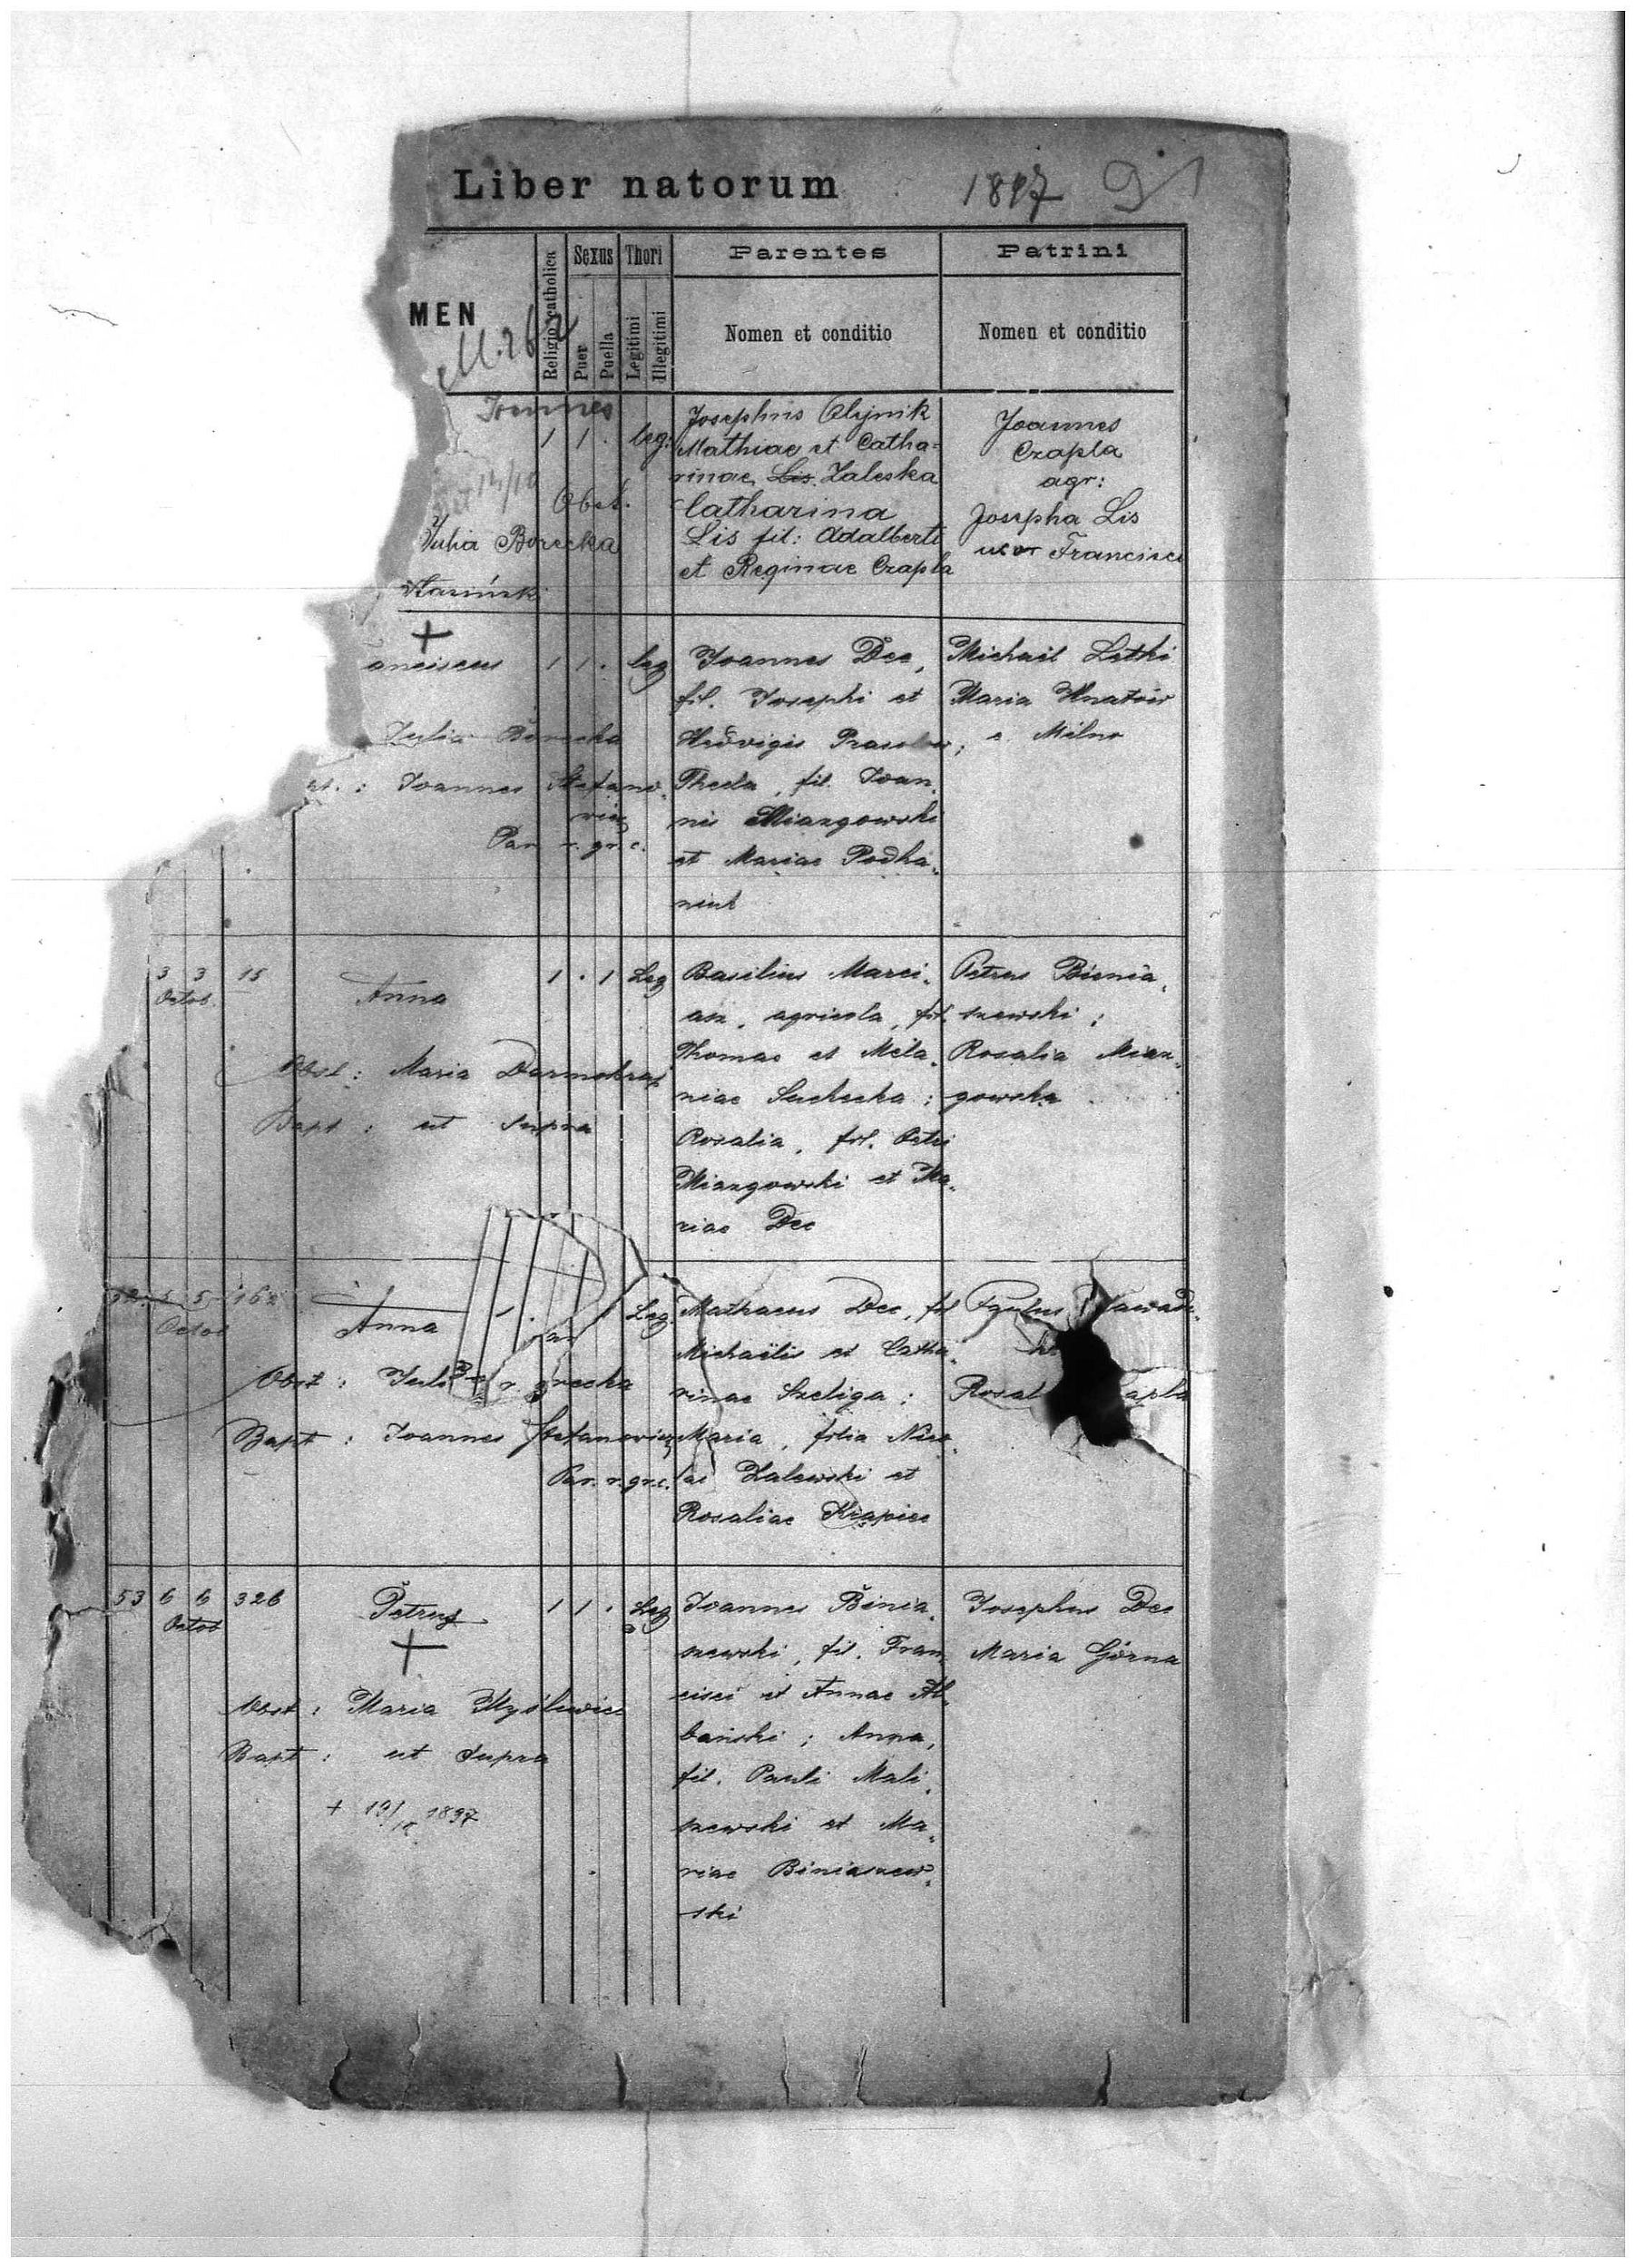 Liber natorum 1897
MEN
Religio catholica
Sexus
Puer
Puella
Thori
Legitimi
Illegitimi
Parentes
Nomen et conditio
Patrini
Nomen et conditio
Joannes
1 1 . leg:
14/10
Obst.
Julia Borecka
Josephus Olijnik
Mathiae et Catha=
rinae Lis. Zaleska
Catharina
Lis fil: Adalberti
et Reginae Czapla
Joannes
Czapla
agr:
Josepha Lis
uxor Francisci
anciscus 1 1 . leg
Julia Borecka
Joannes Stefano-
wicz
Par. r. gr. c.
Joannes Dec,
fil. Josephi et
Hedvigis
Thecla, fil. Joan-
nis Miazgowski
et Mariae Podha-
niuk
Michail Letki
Maria Hnatów
e Milno
3 3 15
Octob.
Anna 1 . 1 Leg
Obst: Maria Darmohraj
Bapt: ut supra
Basilius Marci-
asz, agricola, fil.
Thomae et Mela-
niae Suchecka;
Rosalia, fil. Petri
Miazgowski et Ma-
riae Dec
Petrus Bienia-
szewski;
Rosalia Miaz-
gowska
5 5 162
Octob
Anna 1 . 1 Leg.
Obst: Juli recka
Bapt: Joannes Stefanowicz
Par. r. gr. c.
Mathaeus Dec, fil
Michaëlis et Catha-
rinae Szeliga;
Maria, filia Nico-
lai Zalewski et
Rosaliae Krapiec
Paulus
Rosal apla
53 6 6 326
Octob
Petrus 1 1 . Leg
Obst: Maria Myśliwiec
Bapt: ut supra
+ 19/ 1897
Joannes Binia-
szewski, fil. Fran-
cisci et Annae Al-
bański; Anna,
fil. Pauli Mali-
szewski et Ma-
riae Biniaszew-
ski
Josephus Dec
Maria Górna